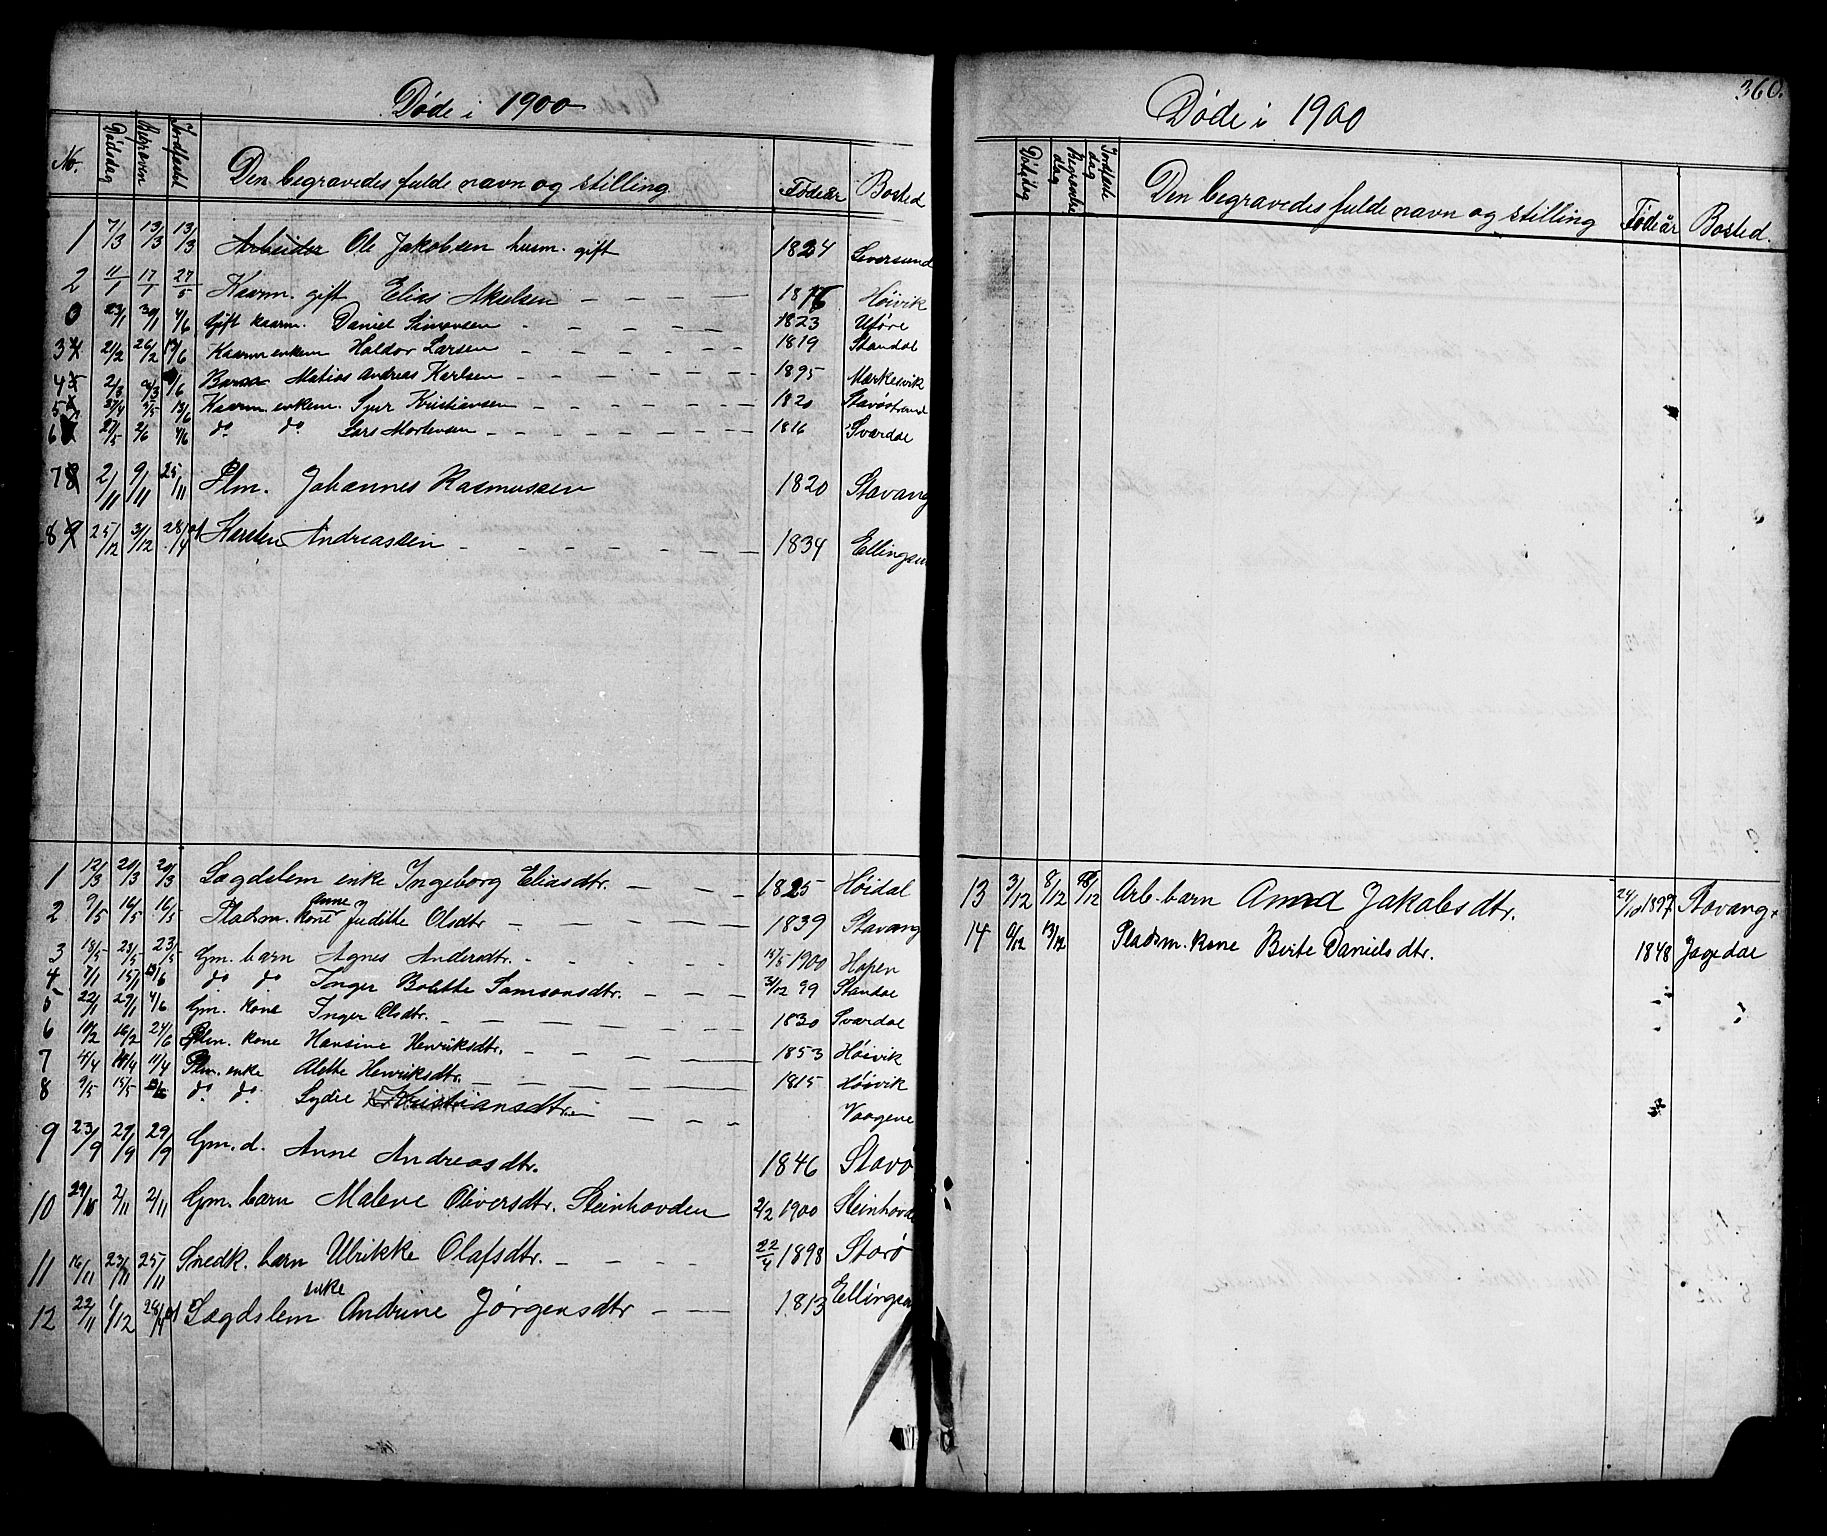 Døde i 1900
No. Dödsdag Begraven Jordfæstet Den begravedes fulde navn og stilling Fødeår Bosted
1 7/3 13/3 13/3 Arbeider Ole Jakobsen husm. gift 1824
2 11/1 17/1 27/5 Kaarm. gift Elias 1816 Høivik
0 23/1 30/1 4/6 Gift kaarm. Daniel Simonsen 1823
3 21/2 26/2 Kaarm enkem Haldor Larsen 1819 Standal
4 2/3 Barn Matias Andreas Karlsen 1895 Markesvik
5 13/6 Kaarm. enkem. Sjur Kristiansen 1820 Stavøstrand
6 27/5 2/6 4/6 do. do. Lars Mortensen 1816 Svardal
7 2/11 9/11 25/11 Plm. Johannes Rasmussen 1820 Stavang
8 25/12 3/12 28/4 Karsten Andreassen 1834 Ellingsun
1 12/3 20/3 20/3 Lægdslem enke Ingeborg Eliasdtr. 1825 Høidal
2 9/5 16/5 16/5 Pladsm. kone Anne Juditte Olsdtr 1839 Stavang
3 18/5 23/5 23/5 Gm. barn Agnes Andersdtr. 14/5 1900 Hopen
4 7/1 15/1 do do Inger Bolette Samsonsdtr. 3/12 99 Standal
5 22/1 29/1 4/6 Gm. kone Inger Olsdtr. 1830 Svardal
6 10/2 16/2 24/6 Plm. kone Hansine Henriksdtr. 1853 Høivik
7 4/4 11/4 Plm. enke Alette Henriksdtr. 1815 Høivik
8 9/5 15/5 do. do. Sydre Kristiansdtr. Vaagene
9 23/9 29/9 29/9 Gm. d. Anne Andreasdtr. 1846 Stavø
10 2/11 2/11 Gm. barn Malene Oliversdtr. Steinhovden 2/2 1900 Steinhovde
11 16/11 23/11 25/11 Snedk. barn Ulrikke Olafsdtr. 22/4 1898 Storø
12 22/11 1/12 28/4 Lægdslem enke Andrine Jørgensdtr 1813 Ellingsun
360.
Døde i 1900
Dödsdag Begravelse dag Jordfæste dag Den begravedes fulde navn og stilling Fødeår Bosted.
13 3/12 8/12 Arb. barn Jakobsdtr. 24/10 1897 Stavang
14 13/12 Pladsm. kone Berte Danielsdtr. 1848